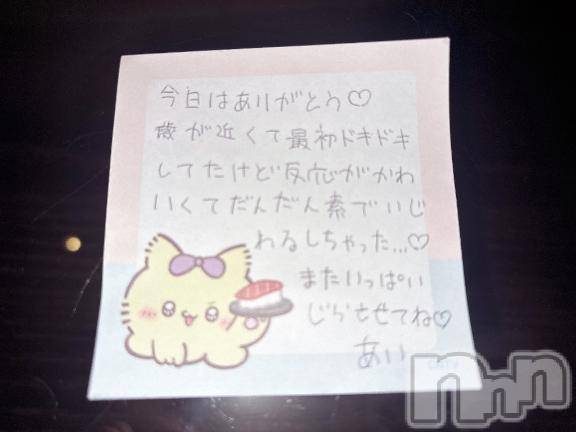 今日はありがとう♡
歳が近くて最初ドキドキ
してたけど反応がかわ
いくてだんだん素でいじ
わるしちゃった...♡
またいっぱい
じらさせてね♡
あい
nnn